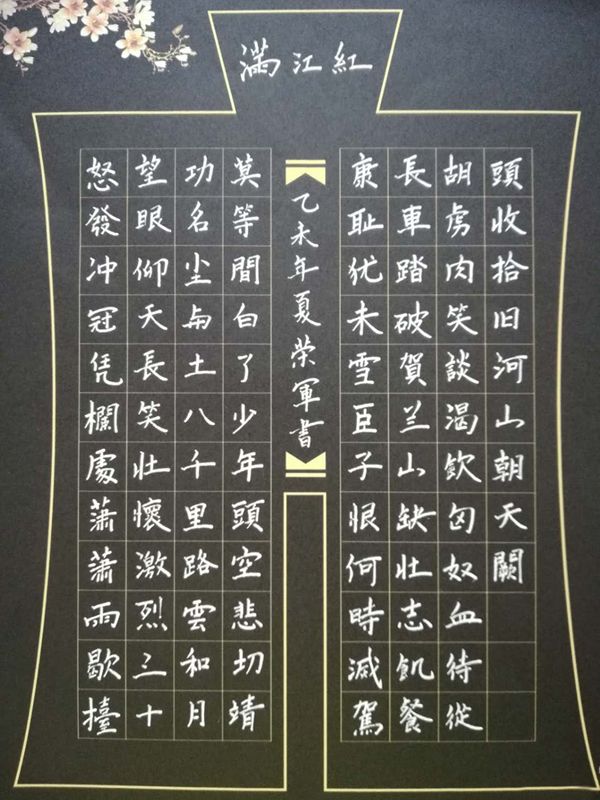 滿江紅
怒發冲冠凭欄處蕭蕭雨歇擡
望眼仰天長笑壮懷激烈三十
功名尘与土八千里路雲和月
莫等間白了少年頭空悲切靖
康耻犹未雪臣子恨何時滅駕
長車踏破賀兰山缺壮志飢餐
胡虏肉笑談渴飲匈奴血待從
頭收拾旧河山朝天闕
乙未年夏荣軍書